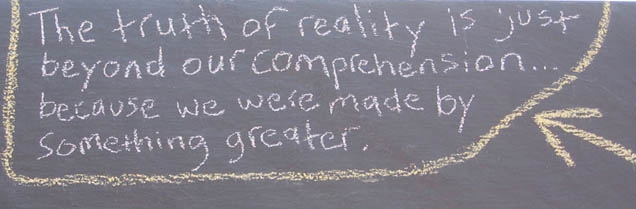 The truth of reality is just
beyond our comprehension...
because we were made by
something greater.